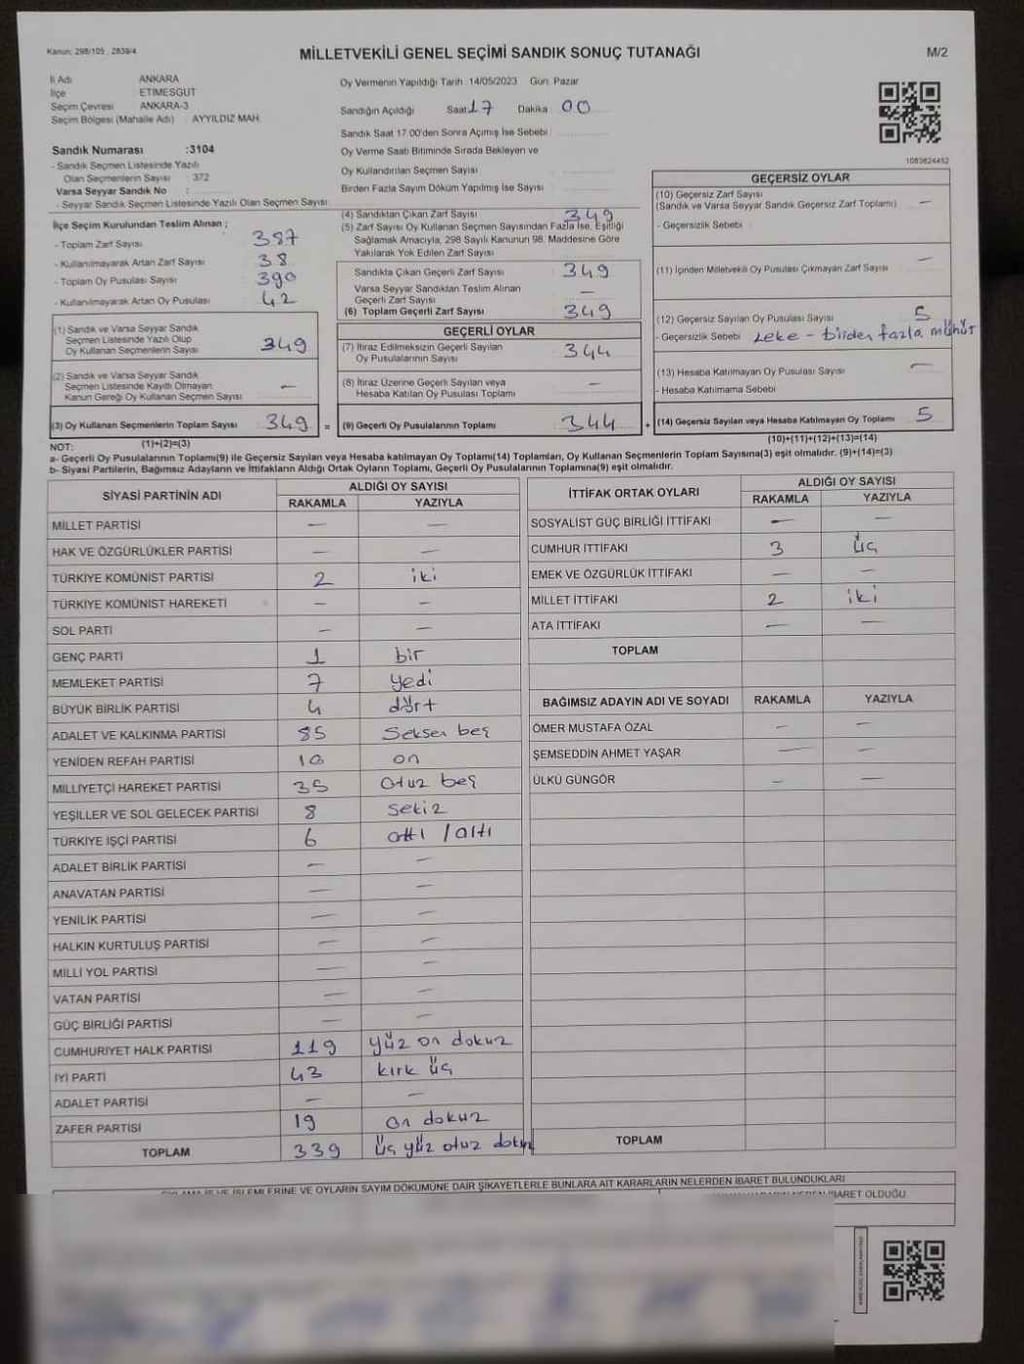 Kanun: 298/105 , 2839/4
MİLLETVEKİLİ GENEL SEÇİMİ SANDIK SONUÇ TUTANAĞI
M/2
İl Adı ANKARA
İlçe ETİMESGUT
Seçim Çevresi ANKARA-3
Seçim Bölgesi (Mahalle Adı) : AYYILDIZ MAH.
Sandık Numarası :3104
- Sandık Seçmen Listesinde Yazılı
Olan Seçmenlerin Sayısı : 372
Varsa Seyyar Sandık No :
- Seyyar Sandık Seçmen Listesinde Yazılı Olan Seçmen Sayısı
Oy Vermenin Yapıldığı Tarih :14/05/2023 Gün: Pazar
Sandığın Açıldığı Saat 17 Dakika 00
Sandık Saat 17.00'den Sonra Açımış İse Sebebi
Oy Verme Saati Bitiminde Sırada Bekleyen ve
Oy Kullandırılan Seçmen Sayısı
Birden Fazla Sayım Döküm Yapılmış İse Sayısı
1083624452
İlçe Seçim Kurulundan Teslim Alınan ;
- Toplam Zarf Sayısı 387
- Kullanılmayarak Artan Zarf Sayısı 38
- Toplam Oy Pusulası Sayısı 390
- Kullanılmayarak Artan Oy Pusulası 42
(1) Sandık ve Varsa Seyyar Sandık
Seçmen Listesinde Yazılı Olup
Oy Kullanan Seçmenlerin Sayısı 349
(2) Sandık ve Varsa Seyyar Sandık
Seçmen Listesinde Kayıtlı Olmayan
Kanun Gereği Oy Kullanan Seçmen Sayısı —
(3) Oy Kullanan Seçmenlerin Toplam Sayısı 349 =
(1)+(2)=(3)
(4) Sandıktan Çıkan Zarf Sayısı 349
(5) Zarf Sayısı Oy Kullanan Seçmen Sayısından Fazla İse, Eşitliği
Sağlamak Amacıyla, 298 Sayılı Kanunun 98. Maddesine Göre
Yakılarak Yok Edilen Zarf Sayısı
Sandıkta Çıkan Geçerli Zarf Sayısı 349
Varsa Seyyar Sandıktan Teslim Alınan
Geçerli Zarf Sayısı —
(6) Toplam Geçerli Zarf Sayısı 349
GEÇERLİ OYLAR
(7) İtiraz Edilmeksizin Geçerli Sayılan
Oy Pusulalarının Sayısı 344
(8) İtiraz Üzerine Geçerli Sayılan veya
Hesaba Katılan Oy Pusulası Toplamı —
(9) Geçerli Oy Pusulalarının Toplamı 344 +
GEÇERSİZ OYLAR
(10) Geçersiz Zarf Sayısı
(Sandık ve Varsa Seyyar Sandık Geçersiz Zarf Toplamı) —
- Geçersizlik Sebebi
(11) İçinden Milletvekili Oy Pusulası Çıkmayan Zarf Sayısı —
(12) Geçersiz Sayılan Oy Pusulası Sayısı 5
- Geçersizlik Sebebi Leke - birden fazla mühür
(13) Hesaba Katılmayan Oy Pusulası Sayısı —
- Hesaba Katılmama Sebebi
(14) Geçersiz Sayılan veya Hesaba Katılmayan Oy Toplamı 5
(10)+(11)+(12)+(13)=(14)
NOT:
a- Geçerli Oy Pusulalarının Toplamı(9) ile Geçersiz Sayılan veya Hesaba katılmayan Oy Toplamı(14) Toplamları, Oy Kullanan Seçmenlerin Toplam Sayısına(3) eşit olmalıdır. (9)+(14)=(3)
b- Siyasi Partilerin, Bağımsız Adayların ve İttifakların Aldığı Ortak Oyların Toplamı, Geçerli Oy Pusulalarının Toplamına(9) eşit olmalıdır.
SİYASİ PARTİNİN ADI ALDIĞI OY SAYISI
RAKAMLA YAZIYLA
MİLLET PARTİSİ — —
HAK VE ÖZGÜRLÜKLER PARTİSİ — —
TÜRKİYE KOMÜNİST PARTİSİ 2 iki
TÜRKİYE KOMÜNİST HAREKETİ — —
SOL PARTİ — —
GENÇ PARTİ 1 bir
MEMLEKET PARTİSİ 7 yedi
BÜYÜK BİRLİK PARTİSİ 4 dört
ADALET VE KALKINMA PARTİSİ 85 Seksen beş
YENİDEN REFAH PARTİSİ 10 on
MİLLİYETÇİ HAREKET PARTİSİ 35 Otuz beş
YEŞİLLER VE SOL GELECEK PARTİSİ 8 sekiz
TÜRKİYE İŞÇİ PARTİSİ 6 altı / altı
ADALET BİRLİK PARTİSİ — —
ANAVATAN PARTİSİ — —
YENİLİK PARTİSİ — —
HALKIN KURTULUŞ PARTİSİ — —
MİLLİ YOL PARTİSİ — —
VATAN PARTİSİ — —
GÜÇ BİRLİĞİ PARTİSİ — —
CUMHURİYET HALK PARTİSİ 119 yüz on dokuz
İYİ PARTİ 43 kırk üç
ADALET PARTİSİ — —
ZAFER PARTİSİ 19 on dokuz
TOPLAM 339 üç yüz otuz dokuz
İTTİFAK ORTAK OYLARI ALDIĞI OY SAYISI
RAKAMLA YAZIYLA
SOSYALİST GÜÇ BİRLİĞİ İTTİFAKI — —
CUMHUR İTTİFAKI 3 üç
EMEK VE ÖZGÜRLÜK İTTİFAKI — —
MİLLET İTTİFAKI 2 iki
ATA İTTİFAKI — —
TOPLAM
BAĞIMSIZ ADAYIN ADI VE SOYADI RAKAMLA YAZIYLA
ÖMER MUSTAFA ÖZAL — —
ŞEMSEDDİN AHMET YAŞAR — —
ÜLKÜ GÜNGÖR — —
TOPLAM
İŞLEMLERİNE VE OYLARIN SAYIM DÖKÜMÜNE DAİR ŞİKAYETLERLE BUNLARA AİT KARARLARIN NELERDEN İBARET BULUNDUKLARI
İBARET OLDUĞU